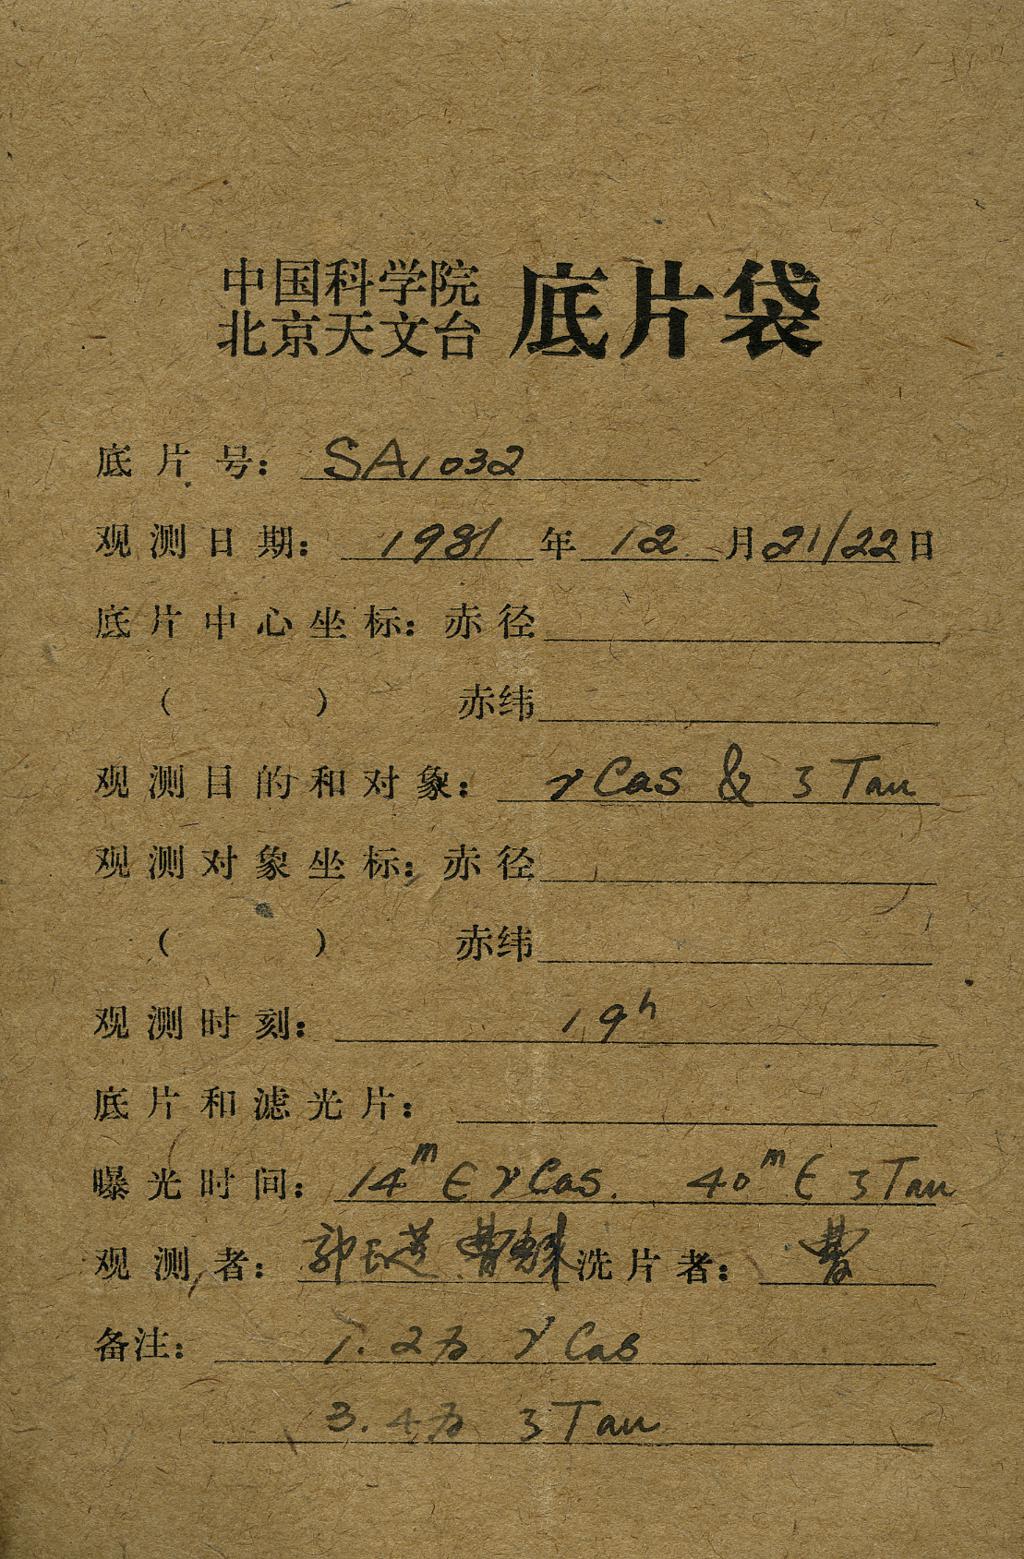 中国科学院
北京天文台 底片袋
底片号: SA1032
观测日期: 1981 年 12 月 21/22 日
底片中心坐标: 赤径
( ) 赤纬
观测目的和对象: γ Cas & ζ Tau
观测对象坐标: 赤径
( ) 赤纬
观测时刻: 19h
底片和滤光片:
曝光时间: 14m E γ Cas. 40m E ζ Tau
观测者: 郭 曹 洗片者: 曹
备注: 1.2为 γ Cas
3.4为 ζ Tau